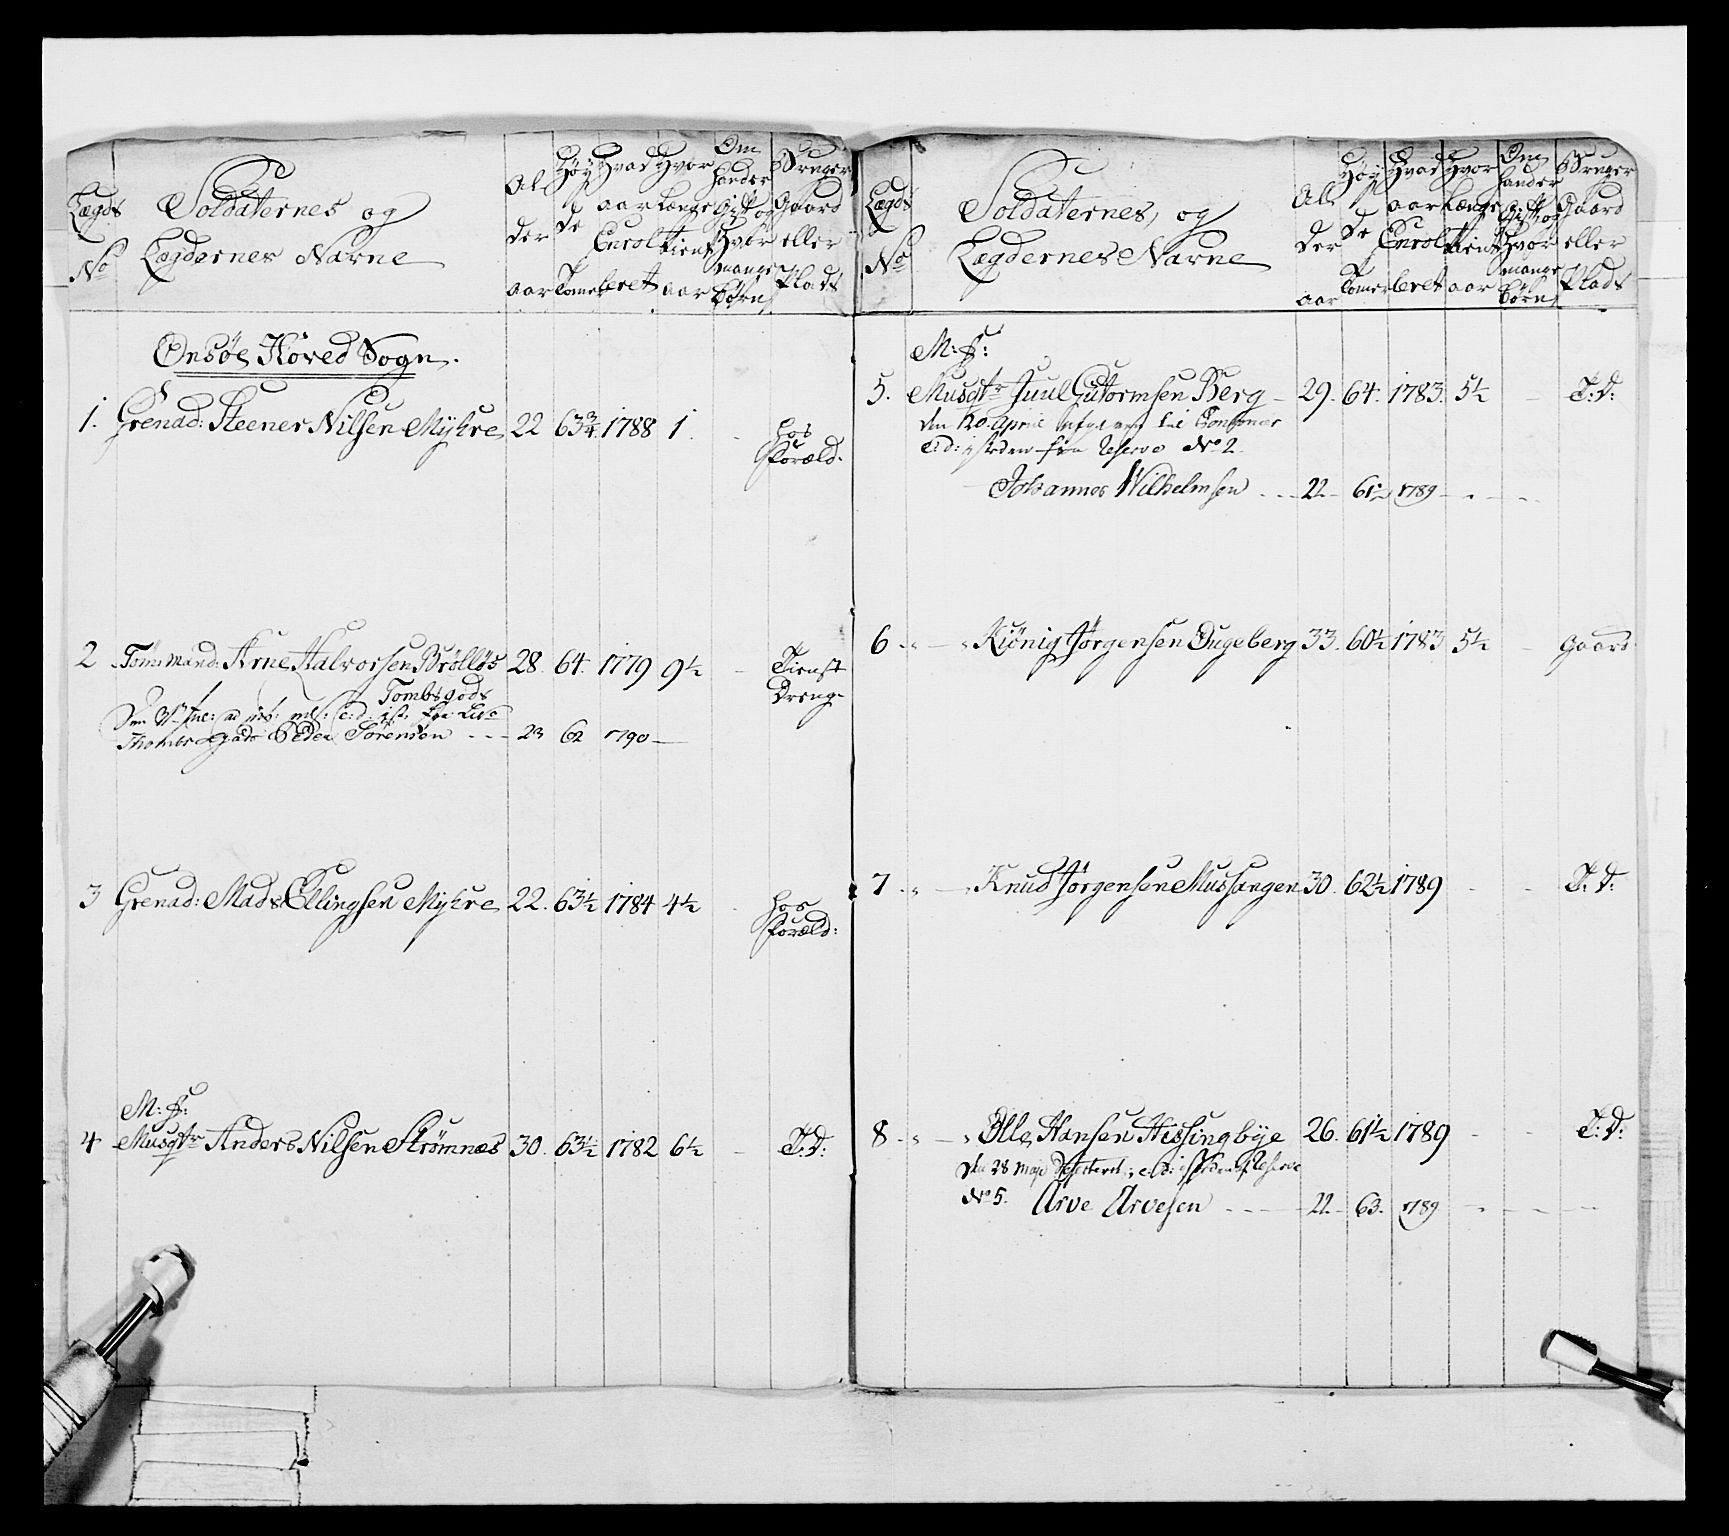 Lægds No
Soldaternes og Lægdernes Navne
Al der aar
Høy de Tomer
Hvad aar Enrolleret
Hvor længe tient aar
Om hander Gift og Hvor mange børn
Bruger Gaard eller Plads
Onsøe Hoved Sogn.
1. Grenad: Steener Nilsen Myhre 22 63¾ 1788 1 hos Foræld:
2 Tømmand: Arne Halvorsen Brølløs 28. 64. 1779 9½ Tienst Dreng
Tombsgods
Peder Sørensen --- 23 62 1790 —
3 Grenad: Mads Ellingsen Myhre 22. 63½ 1784 4½ hos Foræld:
M: S:
4 Musqtr Anders Nilsen Strømnæs 30. 63½ 1782 6½ T: D:
Lægds No
Soldaternes, og Lægdernes Navne
Al der aar
Høy de Tomer
Hvad aar Enrolleret
Hvor længe tient aar
Om hander Gift og Hvor mange børn
Bruger Gaard eller Plads
M: S:
5. Musqtr Juul Guttormsen Berg - 29. 64. 1783. 5½ T: D:
den 20. April
fra Reserve No 2.
Johannes Wilhelmsen --- 22 - 61½ 1789 - - -
6 " — " Kiönig Jørgensen Ougeberg 33. 60½ 1783. 5½ Gaard
7 " — " Knud Jørgensen Mussangen 30. 62½ 1789 T: D:
8 " — " Olle Hansen Hissingbye 26. 61½ 1789 T: D:
den 28 Maji Reserve
No 5. Arve Arvesen --- 22 - 63. 1789 - - -